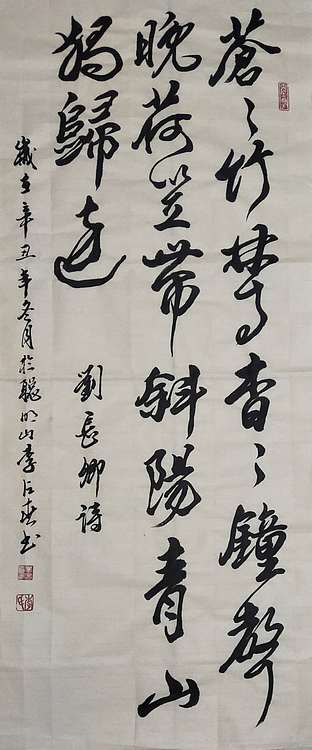 蒼〻竹林寺杳〻鐘聲
晚荷笠帶斜陽青山
獨歸遠
劉長卿詩
歲在辛丑年冬月於山李书